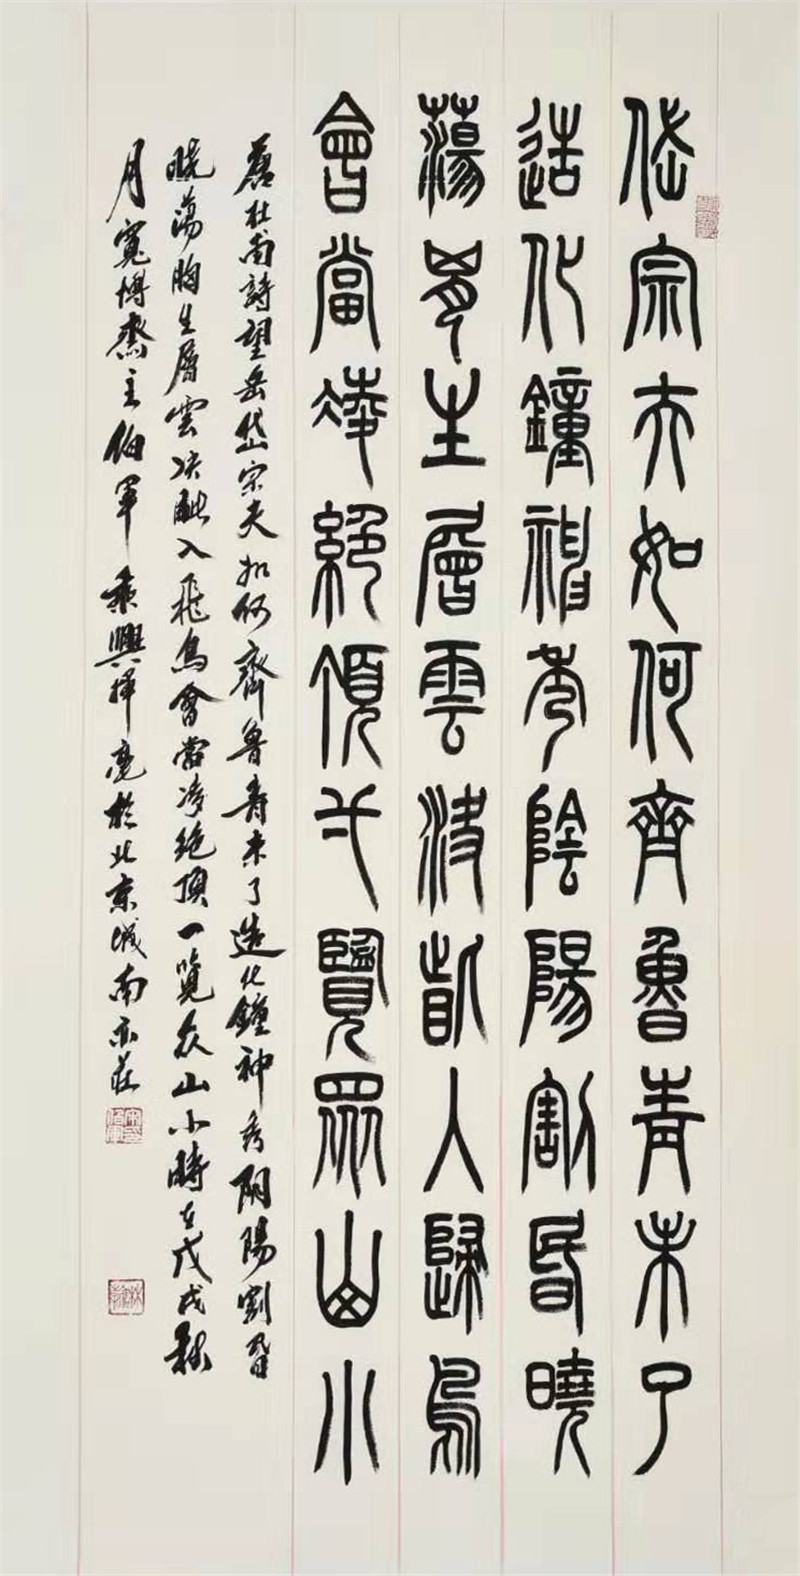 岱宗夫如何齊魯青未了
造化鐘神秀陰陽割昏曉
蕩匈生層雲決眥入歸鳥
會當凌絕頂弌覽眾山小
唐杜甫詩望岳岱宗夫如何齊魯青未了造化鐘神秀阴陽割昏
曉蕩胸生層雲決眦入飛鳥會當凌絕頂一覽众山小時在戊戌秋
月寬博齋主伯軍乘興揮毫於北京城南亦莊